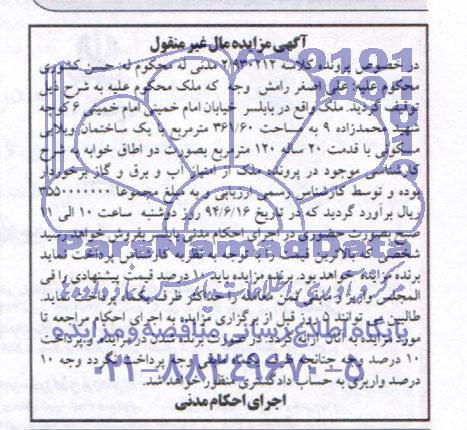 آگهی مزایده مال غیر منقول
در خصوص پرونده کلاسه ۲/۹۳۰۲۱۲ مدنی له محکوم له: حشن کشوری
محکوم علیه: علی اصغر رامش وجه که ملک محکوم علیه به شرح ذیل
توقیف گردید. ملک واقع در بابلسر خیابان امام خمینی امام خمینی ۶ کوچه
شهید محمدزاده ۹ به مساحت ۳۶۱/۶۰ مترمربع با یک ساختمان ویلایی
مسکونی با قدمت ۲۰ ساله ۱۲۰ مترمربع بصورت دو اطاق خوابه به شرح
کارشناسی موجود در پرونده ملک از امتیاز آب و برق و گاز برخوردار
بوده و توسط کارشناس رسمی ارزیابی و به مبلغ مجموعا ۳۵۵۰۰۰۰۰۰۰
ریال برآورد گردید که در تاریخ ۹۴/۶/۱۶ روز دوشنبه ساعت ۱۰ الی ۱۱
صبح بصورت حضوری در اجرای احکام مدنی بابلسر بفروش خواهد رسید
شخصی که بالاترین قیمت را با توجه به نظریه کارشناس پرداخت نماید
برنده مزایده خواهد بود. برنده مزایده باید ۱۰ درصد قیمت پیشنهادی را فی
المجلس واریز و مابقی ثمن معامله را حداکثر ظرف یکماه پرداخت نماید.
طالبین می توانند ۵ روز قبل از برگزاری مزایده به اجرای احکام مراجعه تا
مورد مزایده به آنان ارائه گردد. در صورت برنده شدن در مزایده و پرداخت
۱۰ درصد وجه چنانچه ظرف یکماه مابقی وجه پرداخت نگردد وجه ۱۰
درصد واریزی به حساب دادگستری منظور خواهد شد.
اجرای احکام مدنی
ParsNamadData
مرکز فرآوری اطلاعات پارس نماد داده ها
پایگاه اطلاع رسانی مناقصه و مزایده
۰۲۱-۸۸۳۴۹۶۷۰-۵